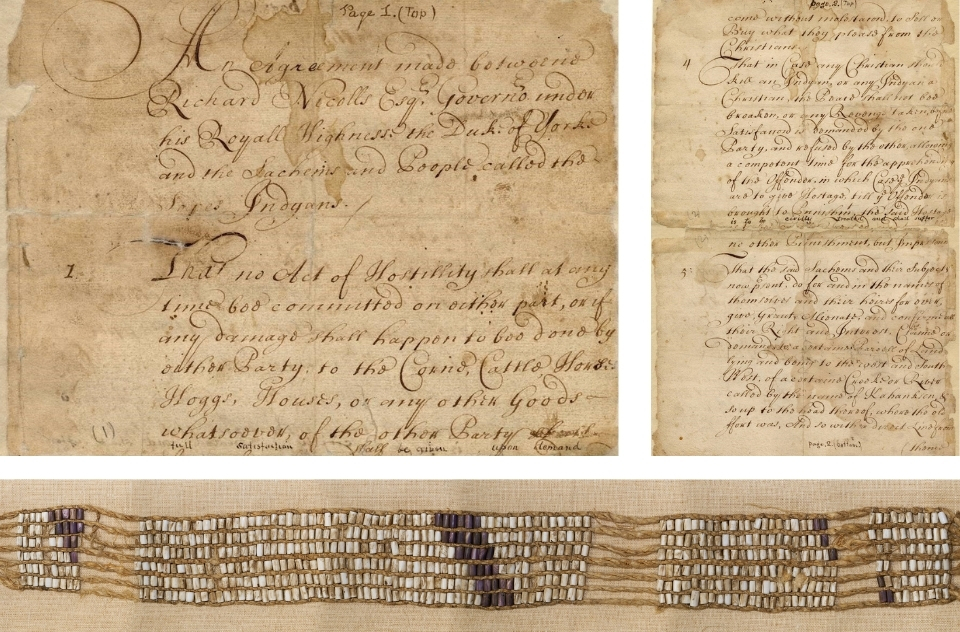 Page 1. (Top)
An Agreement made betweene
Richard Nicolls Esqr. Governor under
his Royall Highnesse the Duke of Yorke
and the Sachems and People called the
Sopes Indyans.
1. That no Act of Hostillity shall at any
time bee committed on either part, or if
any damage shall happen to bee done by
either Party, to the Corne, Cattle Horses
Hoggs, Houses, or any other Goods
whatsoever, of the other Party
(1)
full satisfaction shall be given upon demand
Page 2. (Top)
come without molestacon, to sell or
Buy what they please from the
Christians.
4 That in Case any Christian shou
kill an Indyan, or any Indyan a
Christian, the Peace shall not bee
broaken, or any Revenge taken,
Satisfaccon is demanded by the one
Party, and refused by the other, allowing
a competent time for the apprehen
of the Offender, in which Case ye Indyans
are to give Hostage, till ye Offende
brought to Punishmt, the said Hostage
is to be civilly and shall suffer
no other Punishment, but Impr
5: That the said Sachems and their Subjects
now present, do for and in the names of
themselves and their heires for ever,
give, Grant, Alienate, and confirme all
their Right and Interest, Claime or
demand to a certaine parcell of Land
lying and being to the West and South
West, of a certaine Creeke or River
called by the name of Kahanksen
so up to the head thereof, where the old
ffort was, And so with a direct Line from
Page 2. (bottom)
thence